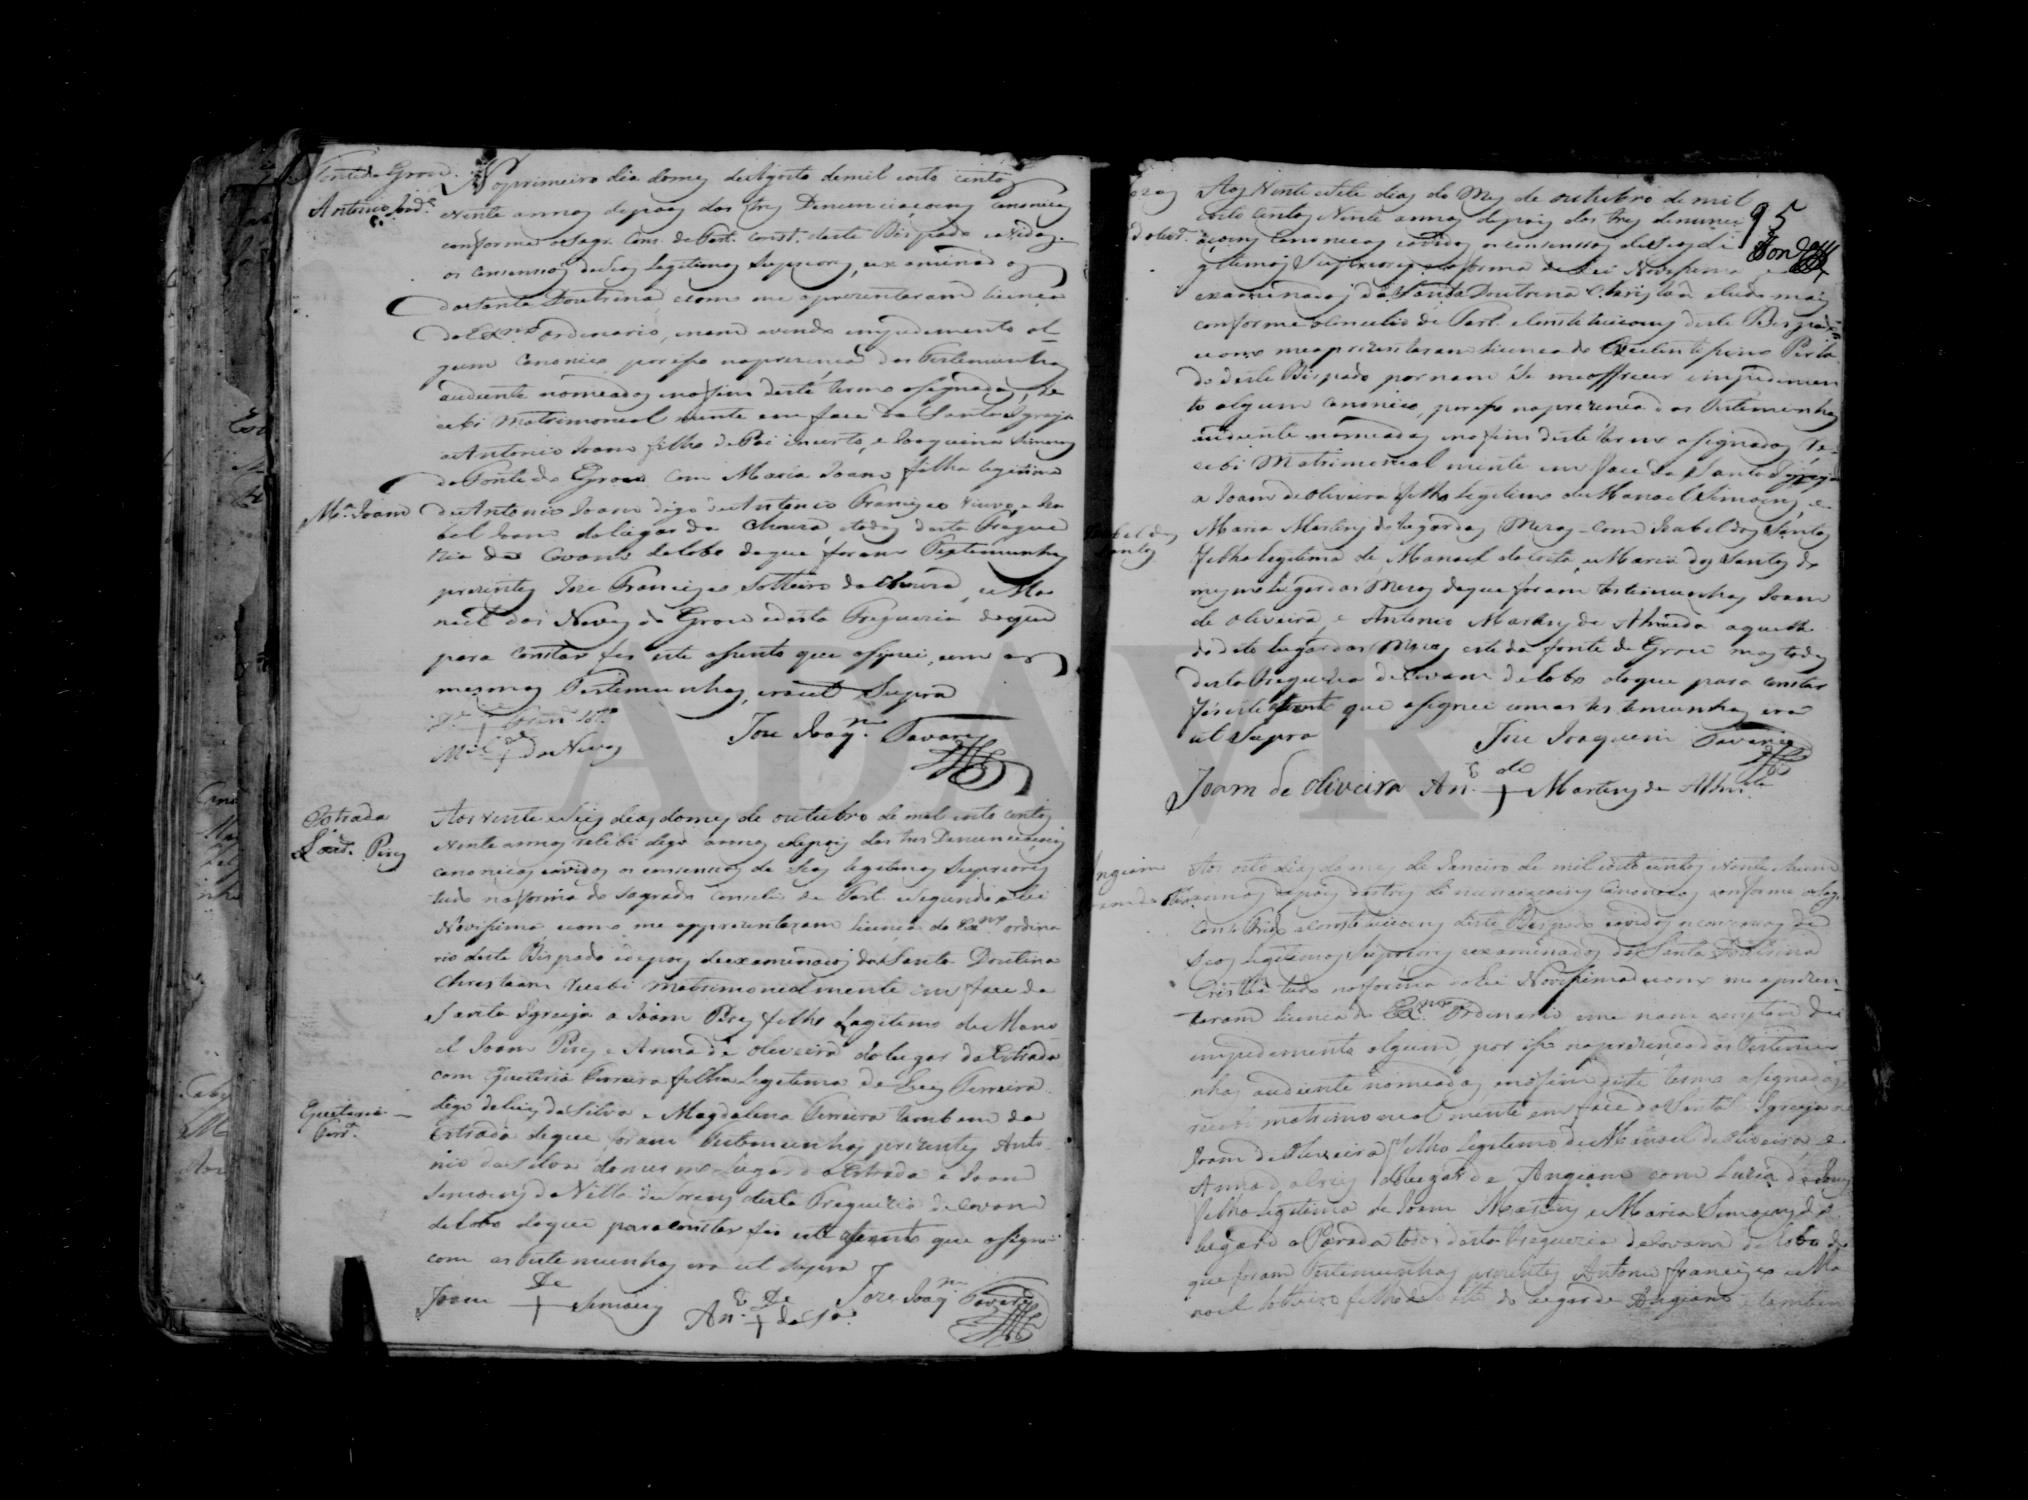 Fonte de Grou.
Antonio Joã.
No primeiro dia do mez de Agosto de mil oito centos
e vinte annos depoes das trez Denunciacoens Canonicas
conforme o Sagr. Conc. de Trt. const. deste Bispado ouvidos
os consensos de Seos legitimos Superiores, examinados
da Santa Doutrina, e como me aprezentaram licença
do Ex.mo ordinario, e nam avendo empedimento al-
gum canonico por isso na prezença das Testemunhas
audiente nomeadas e no fim deste termo asignadas, re-
cebi Matrimonial mente em face da Santa Igreja
a Antonio Joam filho de Pai incerto, e Joaquina Simoens
da Fonte de Grou com Maria Joam filha legitima
M.a Joam
de Antonio Joam digo de Antonio Francisco viuvo, e Iza
bel Joam do lugar da Choura, todos desta Fregue
zia de Covam do Lobo de que foram Testemunhas
prezentes Joze Francisco Solteiro da Choura, e Ma
noel das Neves de Grou e desta Freguezia de que
para constar fes este asento que asignei, com as
mesmas Testemunhas, era ut Supra
Joze Joaq.m Tavares
M.el das Neves
Estrada
Joam Pires
Aos vente e seis dias do mes de outubro de mil oito centos
e vinte annos recebi digo annos depois das tres Denunciaçois
canonicas ouvidos os consensos de Seos legitimos Superiores
tudo na forma do Sagrado concilio de Trt. e segundo a Lei
Novissima e como me apprezentaram licença do Ex.mo ordina
rio deste Bispado e depois de examinados da Santa Doutrina
Christaam recebi Matrimonialmente em face da
Santa Igreja a Joam Pires filho Legitimo de Mano
el Joam Pires e Anna de Oliveira do lugar da Estrada
com Quiteria Ferreira filha Legitima de Luis Ferreira
Quiteria
Ferr.a
digo de Luis da Silva e Magdalena Ferreira tambem da
Estrada de que foram Testemunhas prezentes Anto
nio da Silva do mesmo Lugar da Estrada e Joam
Simoens de Villa de Soreng desta Freguezia de Covam
do Lobo de que para constar fis este asento que asignei
com as Testemunhas era ut Supra
Joze Joaq.m Tavares
Joam de Simoens
An.to de da S.a
95
Aos Vinte e sete dias do Mez de outubro de mil
oito centos Vinte annos depois das trez denunci
açoens Canonicas ouvidos os consensos de Seos Le
gitimos Superiores na forma da Lei Novissima e
examinados da Santa Doutrina Christaã e tudo mais
conforme o Concilio de Trt. e Constituicoens deste Bispado
e como me aprezentaram licença do Excelentissimo Perla
do deste Bispado por nam se me offrecer empedimen
to algum canonico, por isso na prezença das Testemunhas
audiente nomeadas e no fim deste termo asignadas re-
cebi Matrimonial mente em face da Santa Igreja
a Joam de Oliveira filho legitimo de Manoel Simoens, e
Maria Martins do lugar das Mezas com Izabel dos Santos
Izabel dos
Santos
filha legitima de Manoel da Costa, e Maria dos Santos do
mesmo lugar das Mezas de que foram testemunhas Joam
de Oliveira e Antonio Martins de Almeida aquelle
do dito lugar das Mezas este da fonte de Grou mas todos
desta Freguezia de Covam do Lobo do que para constar
fis este asento que asignei com as testemunhas era
ut Supra
Joze Joaquim Tavares
Joam de Oliveira An.to de Martins de Alm.da
Angiam
Aos oito dias do mes de Janeiro de mil oito centos Vinte e hum
annos depois das tres denunciacoens canonicas conforme o Sag.
Conc. Trid. e constituicoens deste Bispado ouvidos os consensos de
Seos legitimos Superiores examinados da Santa Doutrina
Cristã tudo na forma da Lei Novissima e como me aprezen-
taram licença do Ex.mo Ordinario e me nam
empedimento algum por isso na prezença das Testemu
nhas audiente nomeadas e no fim deste termo asignadas
recebi matrimonial mente em face da Santa Igreja
Joam de Oliveira filho legitimo de Manoel de Oliveira, e
Anna do lugar de Angiam com Luzia de
filha legitima de Joam Martins e Maria Simoens do
lugar da Parada todos desta Freguezia de Covam do Lobo de
que foram Testemunhas prezentes Antonio Francisco e Ma
noel solteiro filho do lugar de Angiam e tambem